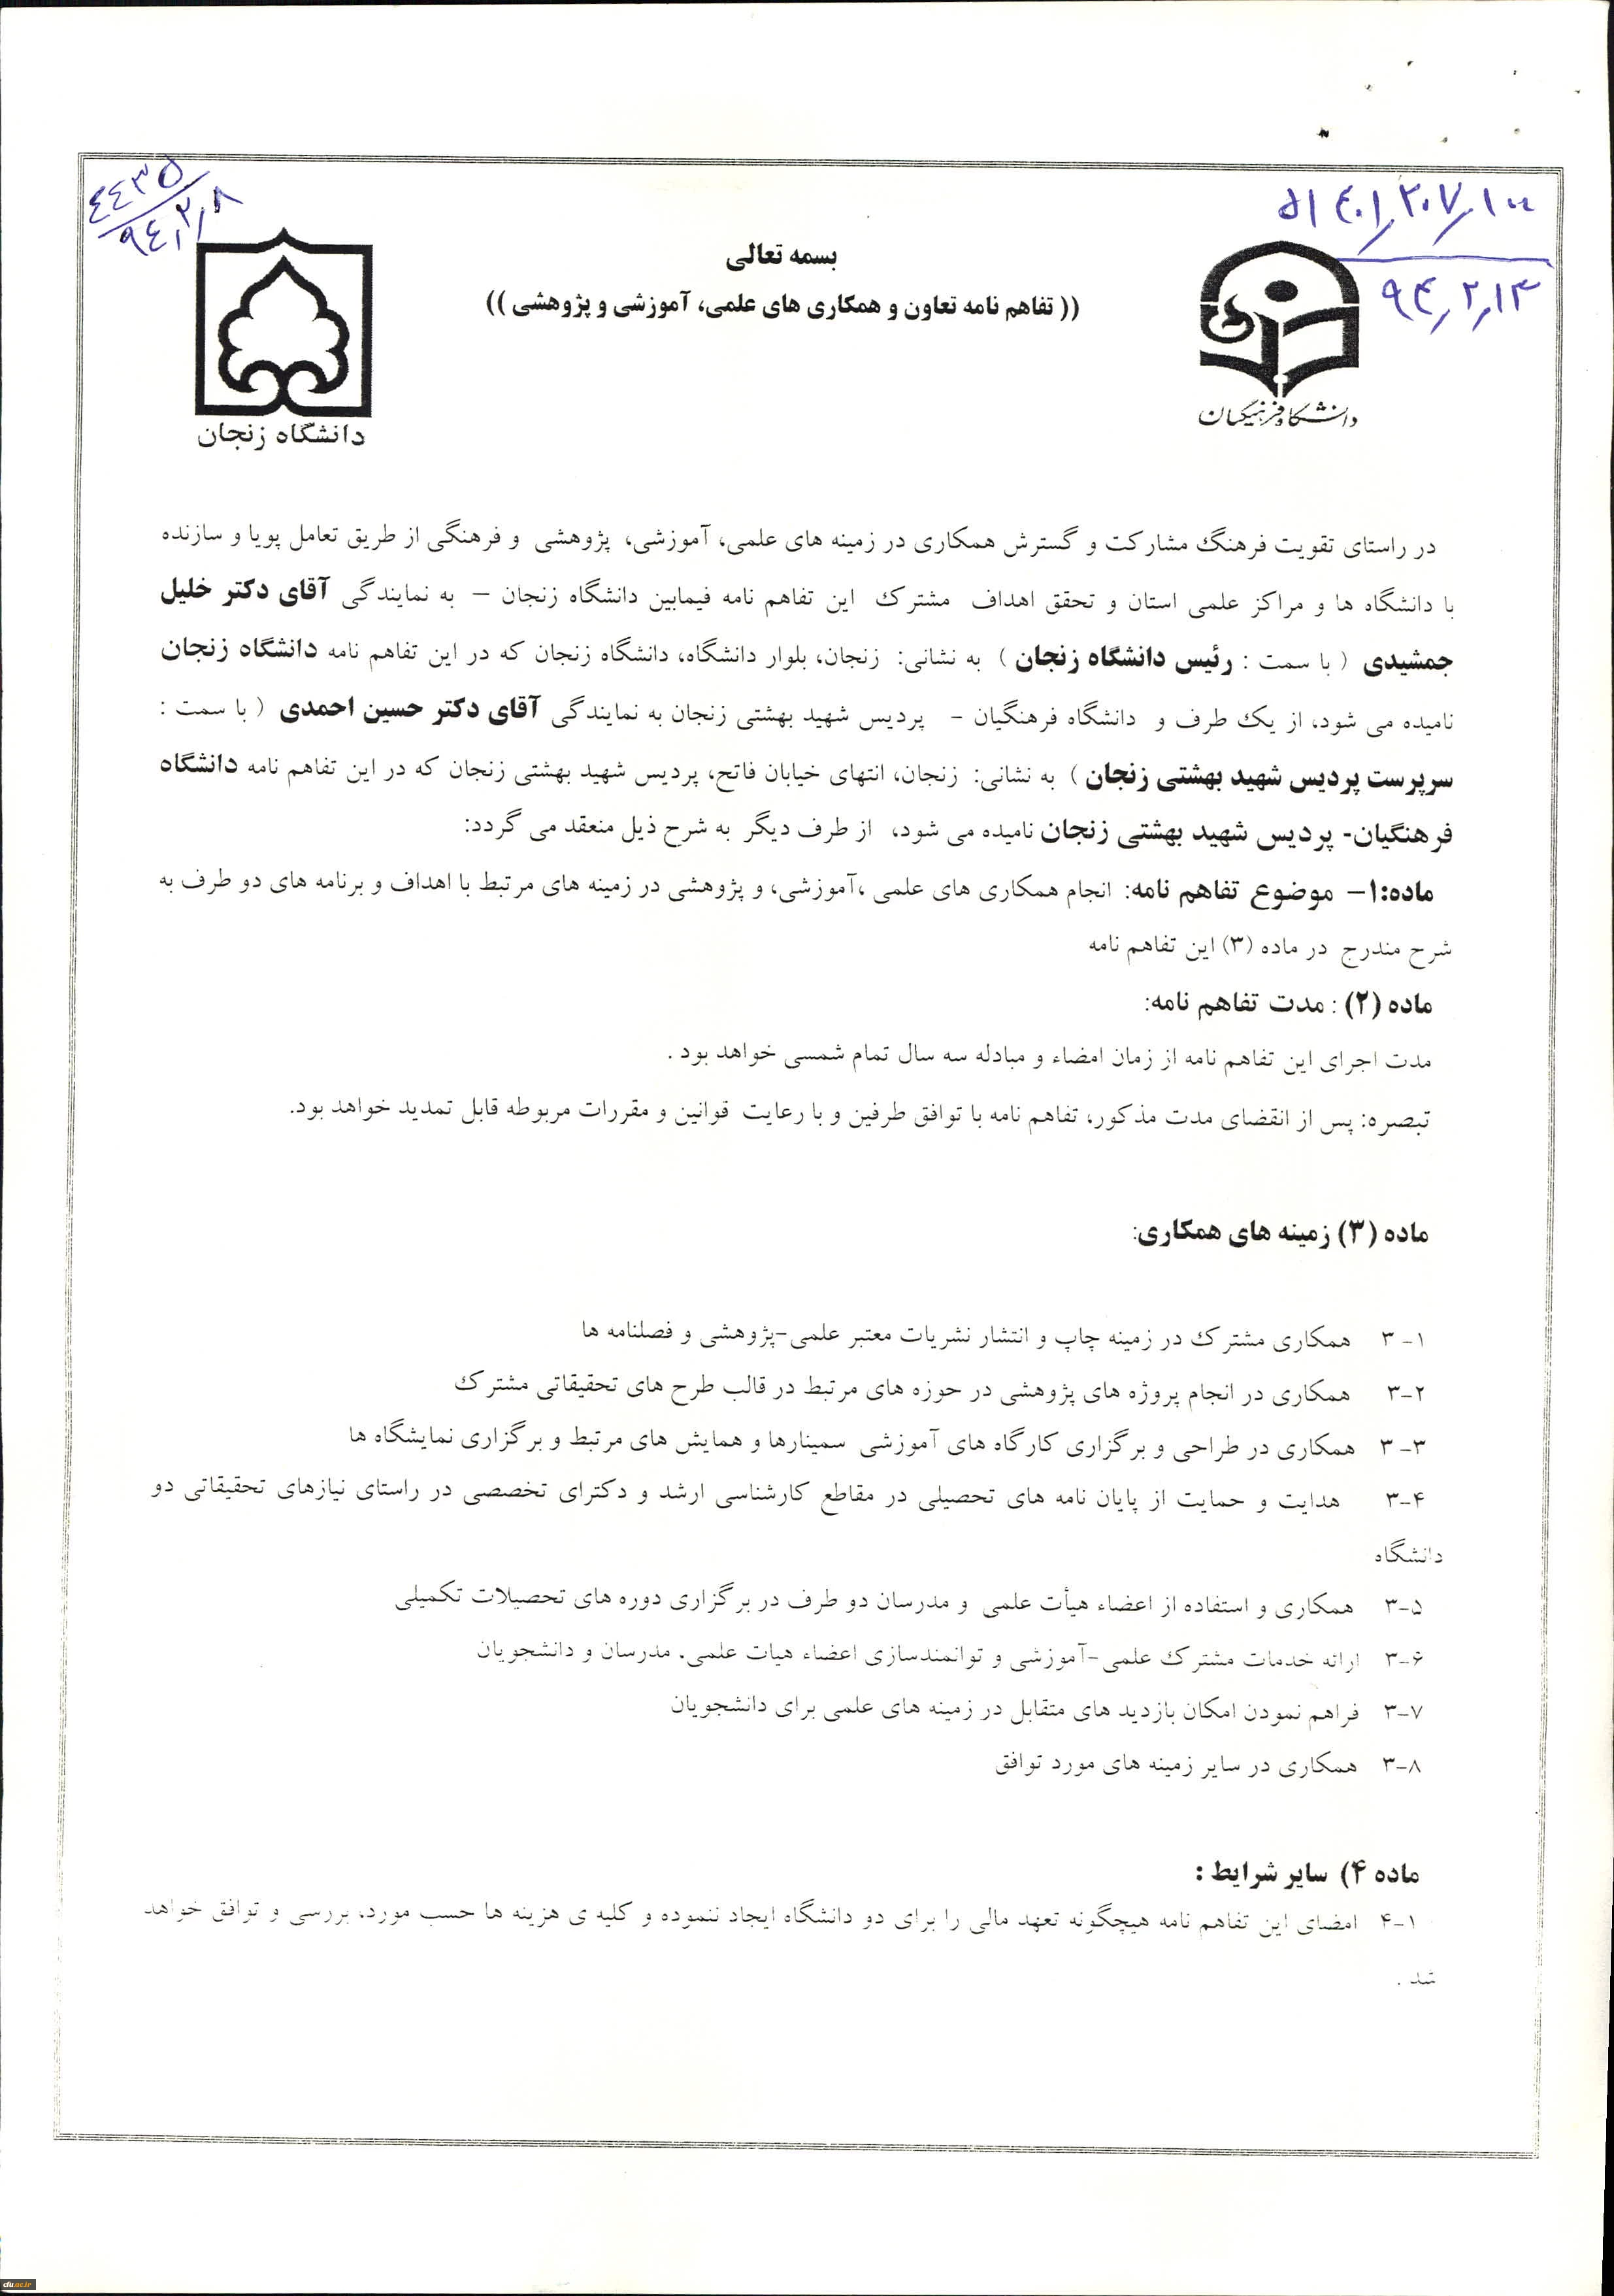 ۵۱۴۰۱/۲۰۷/۱۰۰
۹۴/۲/۱۳
٤٤٣٥
٩٤/٢/٨
بسمه تعالی
(( تفاهم نامه تعاون و همکاری های علمی، آموزشی و پژوهشی ))
دانشگاه فرهنگیان
دانشگاه زنجان
در راستای تقویت فرهنگ مشارکت و گسترش همکاری در زمینه های علمی، آموزشی، پژوهشی و فرهنگی از طریق تعامل پویا و سازنده
با دانشگاه ها و مراکز علمی استان و تحقق اهداف مشترک این تفاهم نامه فیمابین دانشگاه زنجان – به نمایندگی آقای دکتر خلیل
جمشیدی ( با سمت : رئیس دانشگاه زنجان ) به نشانی: زنجان، بلوار دانشگاه، دانشگاه زنجان که در این تفاهم نامه دانشگاه زنجان
نامیده می شود، از یک طرف و دانشگاه فرهنگیان - پردیس شهید بهشتی زنجان به نمایندگی آقای دکتر حسین احمدی ( با سمت :
سرپرست پردیس شهید بهشتی زنجان ) به نشانی: زنجان، انتهای خیابان فاتح، پردیس شهید بهشتی زنجان که در این تفاهم نامه دانشگاه
فرهنگیان- پردیس شهید بهشتی زنجان نامیده می شود، از طرف دیگر به شرح ذیل منعقد می گردد:
ماده:۱– موضوع تفاهم نامه: انجام همکاری های علمی ،آموزشی، و پژوهشی در زمینه های مرتبط با اهداف و برنامه های دو طرف به
شرح مندرج در ماده (۳) این تفاهم نامه
ماده (۲) : مدت تفاهم نامه:
مدت اجرای این تفاهم نامه از زمان امضاء و مبادله سه سال تمام شمسی خواهد بود .
تبصره: پس از انقضای مدت مذکور، تفاهم نامه با توافق طرفین و با رعایت قوانین و مقررات مربوطه قابل تمدید خواهد بود.
ماده (۳) زمینه های همکاری:
۳-۱ همکاری مشترک در زمینه چاپ و انتشار نشریات معتبر علمی-پژوهشی و فصلنامه ها
۳-۲ همکاری در انجام پروژه های پژوهشی در حوزه های مرتبط در قالب طرح های تحقیقاتی مشترک
۳-۳ همکاری در طراحی و برگزاری کارگاه های آموزشی سمینارها و همایش های مرتبط و برگزاری نمایشگاه ها
۳-۴ هدایت و حمایت از پایان نامه های تحصیلی در مقاطع کارشناسی ارشد و دکترای تخصصی در راستای نیازهای تحقیقاتی دو
دانشگاه
۳-۵ همکاری و استفاده از اعضاء هیأت علمی و مدرسان دو طرف در برگزاری دوره های تحصیلات تکمیلی
۳-۶ ارائه خدمات مشترک علمی-آموزشی و توانمندسازی اعضاء هیات علمی، مدرسان و دانشجویان
۳-۷ فراهم نمودن امکان بازدید های متقابل در زمینه های علمی برای دانشجویان
۳-۸ همکاری در سایر زمینه های مورد توافق
ماده ۴) سایر شرایط :
۴-۱ امضای این تفاهم نامه هیچگونه تعهد مالی را برای دو دانشگاه ایجاد ننموده و کلیه ی هزینه ها حسب مورد، بررسی و توافق خواهد
شد .
cfu.ac.ir